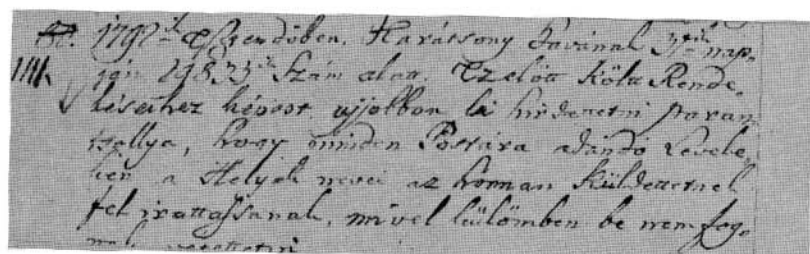 1792ik Esztendőben. Karátsony Havánal 3dik nap-
ján 19833ik Szám alatt. Ezelött költ Rende-
léseihez képest, ujjobban ki hirdetetni paran-
tsollya, hogy minden Postára adandó Levele-
ken a Helyek nevei az honnan küldettetnek
fel irattassanak, mivel külömben be nem fog-
nak vetettetni